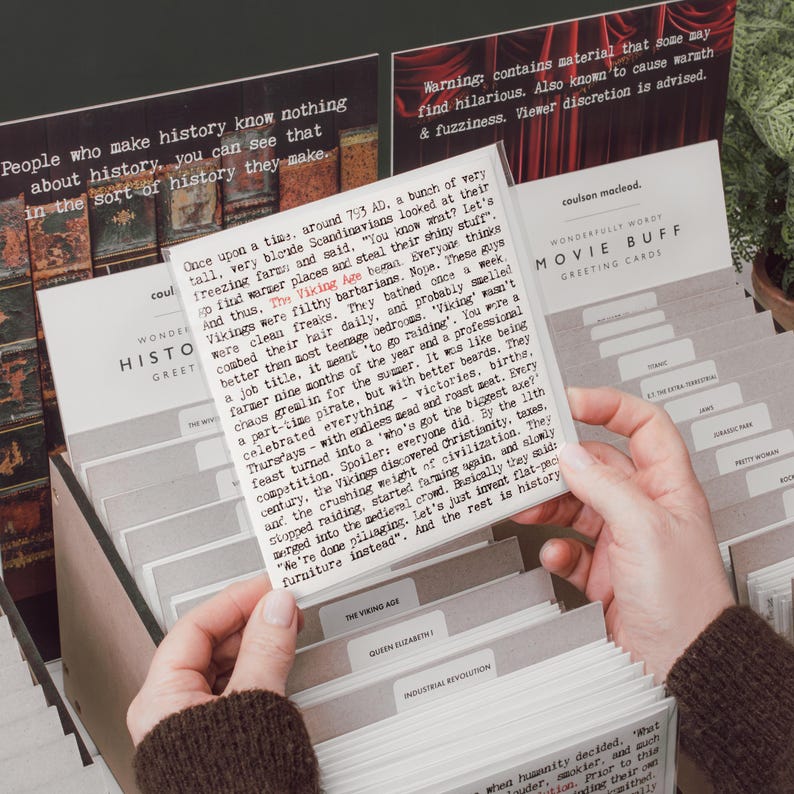 People who make history know nothing
about history. you can see that
in the sort of history they make.
Warning: contains material that some may
find hilarious. Also known to cause warmth
& fuzziness. Viewer discretion is advised.
coulson macleod.
WONDERFULLY WORDY
MOVIE BUFF
GREETING CARDS
coul
WON
HISTO
GREET
Once upon a time, around 793 AD, a bunch of very
tall, very blonde Scandinavians looked at their
freezing farms and said, "You know what? Let's
go find warmer places and steal their shiny stuff".
And thus, The Viking Age began. Everyone thinks
Vikings were filthy barbarians. Nope. These guys
were clean freaks. They bathed once a week,
combed their hair daily, and probably smelled
better than most teenage bedrooms. 'Viking' wasn't
a job title, it meant 'to go raiding'. You were a
farmer nine months of the year and a professional
chaos gremlin for the summer. It was like being
a part-time pirate, but with better beards. They
celebrated everything - victories, births,
Thursdays - with endless mead and roast meat. Every
feast turned into a 'who's got the biggest axe?'
competition. Spoiler: everyone did. By the 11th
century, the Vikings discovered Christianity, taxes,
and the crushing weight of civilization. They
stopped raiding, started farming again, and slowly
merged into the medieval crowd. Basically they said:
"We're done pillaging. Let's just invent flat-pack
furniture instead". And the rest is history
THE WIV
TITANIC
E.T. THE EXTRA-TERRESTRIAL
JAWS
JURASSIC PARK
PRETTY WOMAN
ROCK
THE VIKING AGE
QUEEN ELIZABETH I
INDUSTRIAL REVOLUTION
when humanity decided, 'What
louder, smokier, and much
Prior to this
their own